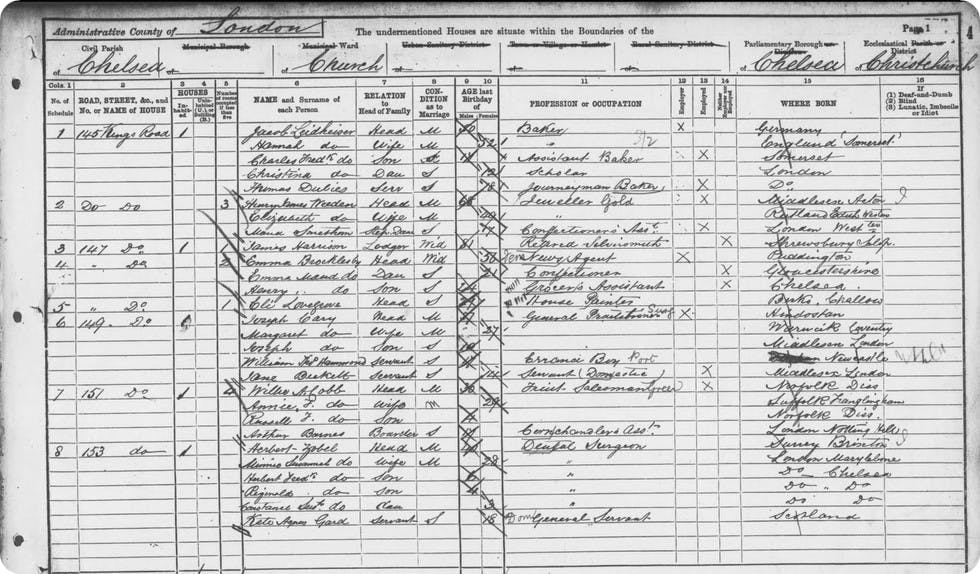 Administrative County of London The undermentioned Houses are situate within the Boundaries of the Page 1
Civil Parish Municipal Borough Municipal Ward Urban Sanitary District Town or Village or Hamlet Rural Sanitary District Parliamentary Borough or Division Ecclesiastical Parish or District
of Chelsea of of Church of of of of Chelsea of Christchurch
Cols. 1 2 3 4 5 6 7 8 9 10 11 12 13 14 15 16
No. of Schedule ROAD, STREET, &c., and No. or NAME of HOUSE HOUSES Inhabited Uninhabited (U.), or Building (B.) Number of rooms occupied if less than five NAME and Surname of each Person RELATION to Head of Family CONDITION as to Marriage AGE last Birthday of Males Females PROFESSION or OCCUPATION Employer Employed Neither Employer nor Employed WHERE BORN If (1) Deaf-and-Dumb (2) Blind (3) Lunatic, Imbecile or Idiot
1 145 Kings Road 1 Jacob Head M Baker X Germany
Hannah do Wife M 52 " England Somerset
Charles Fredk do Son Assistant Baker X Somerset
Christina do Dau S 12 Scholar London
Thomas Dubies Serv S 18 Journeyman Baker X Do
2 Do Do 3 Henry James Weeden Head M Jeweller Gold X Middlesex Acton
Elizabeth do Wife M " Rutland
Maud Smetham Step Dau S 17 Confectioner's Asst X London West
3 147 Do 1 1 James Harrison Lodger Wid 81 Retired Silversmith X Shrewsbury Salop
4 " Do 2 Emma Brocklesby Head Wid 50 News Agent X Puddington
Emma Maud do Dau S 21 Confectioner X Gloucestershire
Henry do Son S 14 Grocer's Assistant X Chelsea
5 " Do 1 Eli Lovegrove Head S House Painter Berks Challow
6 149 Do Joseph Cary Head M General Practitioner Surg X Hindostan
Margaret do Wife M 27 Warwick Coventry
Joseph do Son S Middlesex London
William Hammond Servant S Errand Boy Port Newcastle
Jane Beckett Servant S Servant (Domestic) X Middlesex London
7 151 Do 1 4 Willis Head M Fruit Salesman Grocer X Norfolk Diss
Annie F. do Wife m 29 Suffolk Framlingham
Russell F. do Son Norfolk Diss
Arthur Barnes Boarder S Cornchandler's Asst London Notting Hill
8 153 do 1 Herbert Zobel Head M Dental Surgeon Surrey Brixton
Minnie Susannah do Wife M 28 " London Marylebone
Herbert Fredk do Son 6 " Do Chelsea
Reginald do Son 4 " Do " Do
Constance do Dau 3 " Do Do
Kate Agnes Gard Servant S 18 Dom General Servant Scotland